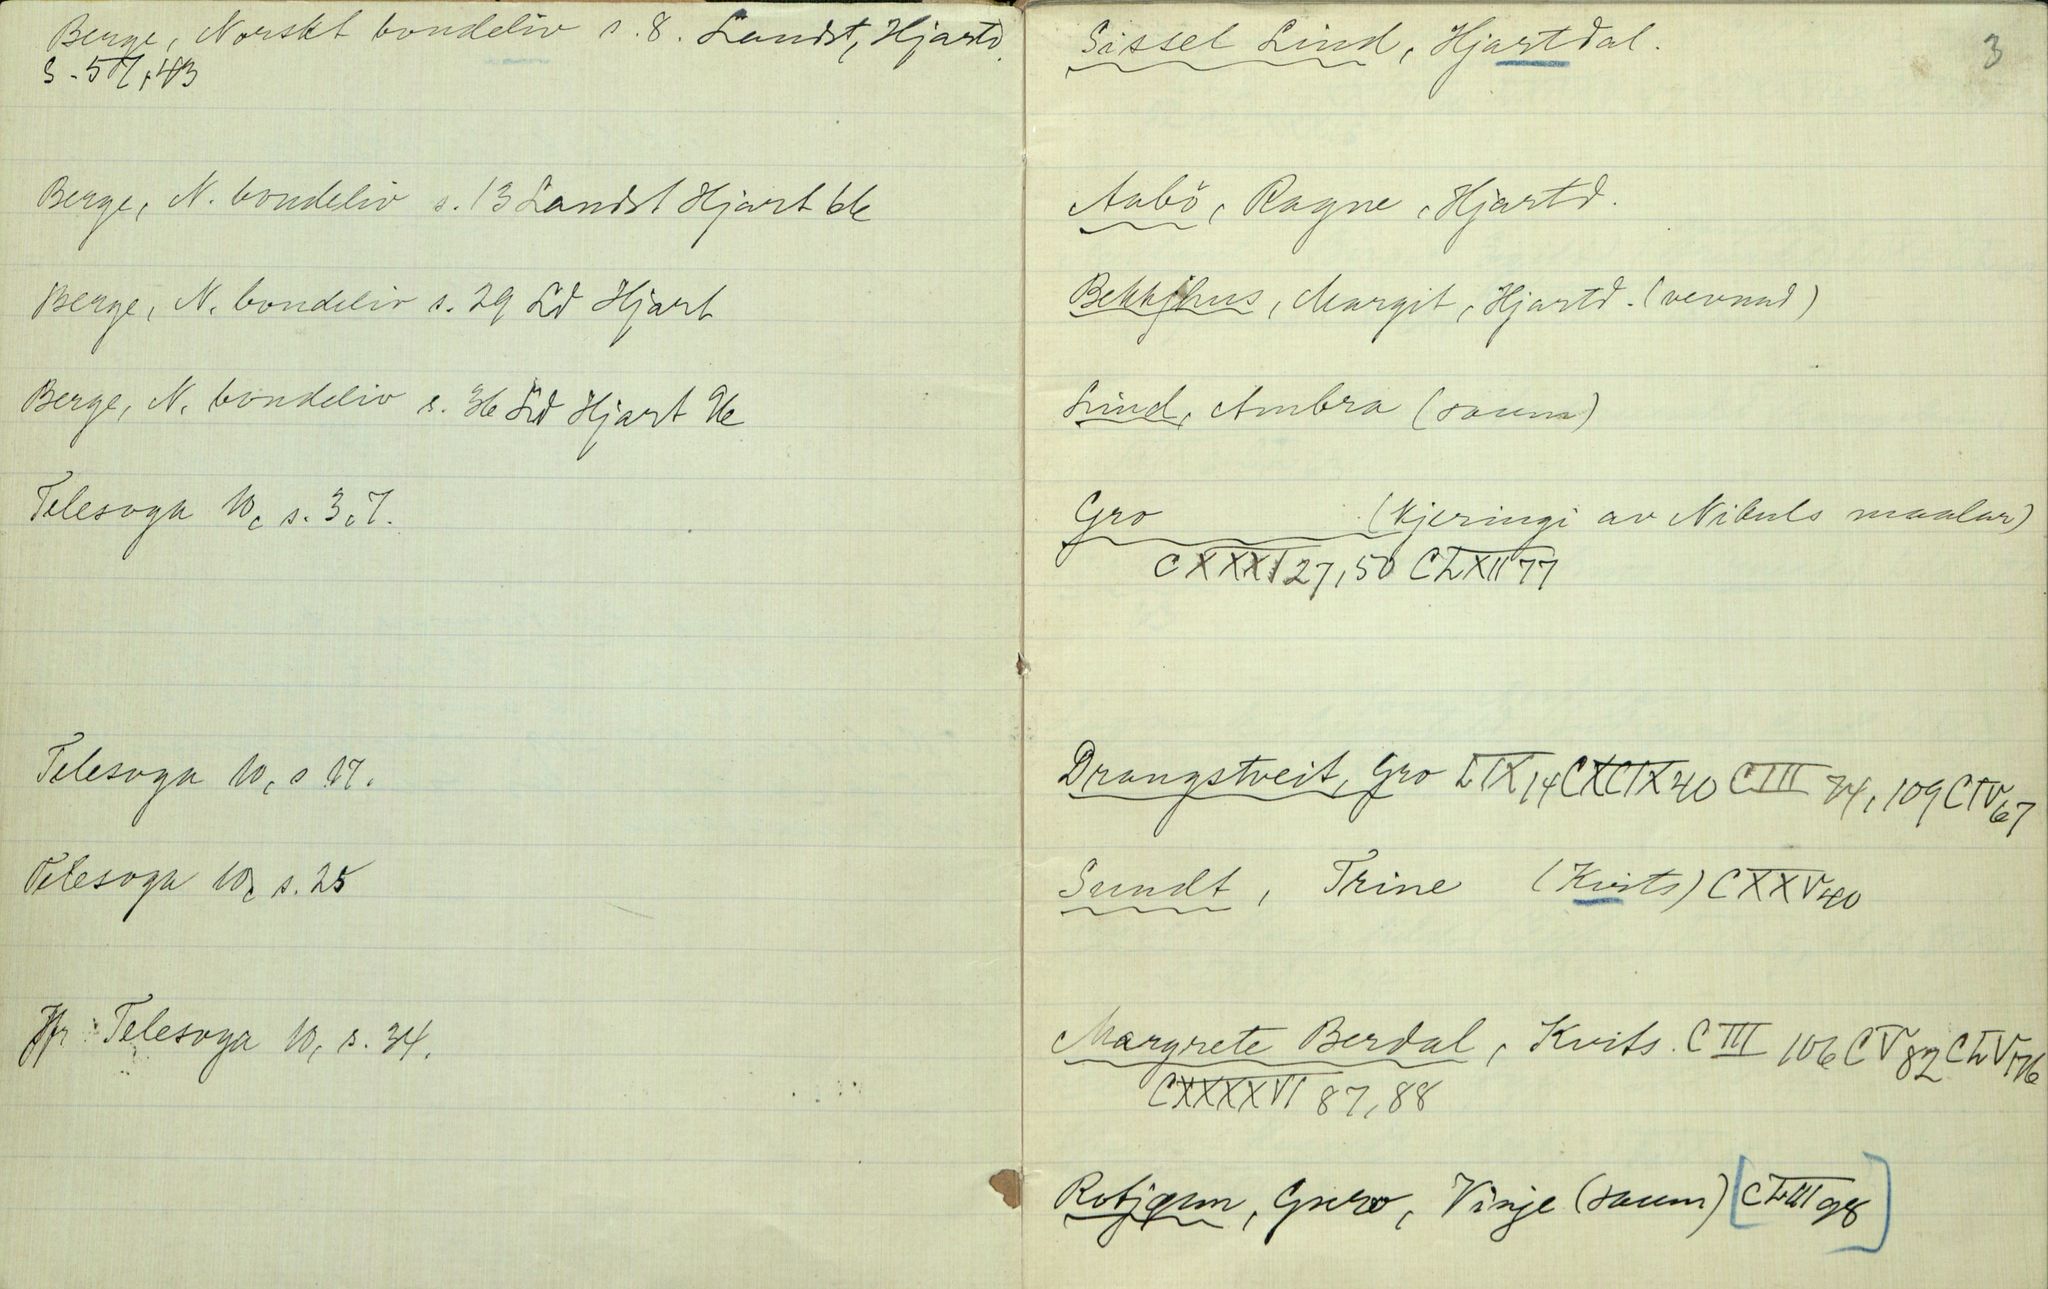 Berge, Norskt bondeliv s. 8. Landst, Hjartd.
S. 57, 43
Berge, N. bondeliv s. 13 Landst Hjart 66
Berge, N. bondeliv s. 29 Ld Hjart
Berge, N. bondeliv s. 36 Ld Hjart 96
Telesoga 10, s. 3, 7.
Telesoga 10, s 17.
Telesoga 10, s. 25
Jfr Telesoga 10, s. 34.
3
Sissel Lind, Hjartdal.
Aabö, Ragne, Hjartd.
Bekkhus, Margit, Hjartd. (vevnad)
Lind, Ambra (saum)
Gro (kjeringi av Nikuls maalar)
CXXXI 27, 50 CLXII 77
Drangstveit, Gro LIX 14 CXCIX 40 CIII 74, 109 CIV 67
Sundt, Trine (Kvits) CXXV 40
Margrete Berdal, Kvits. CIII 106 CV 82 CLV 176
CXXXXVI 87, 88
Rotjønn, Guro, Vinje (saum) [CLIII 98]